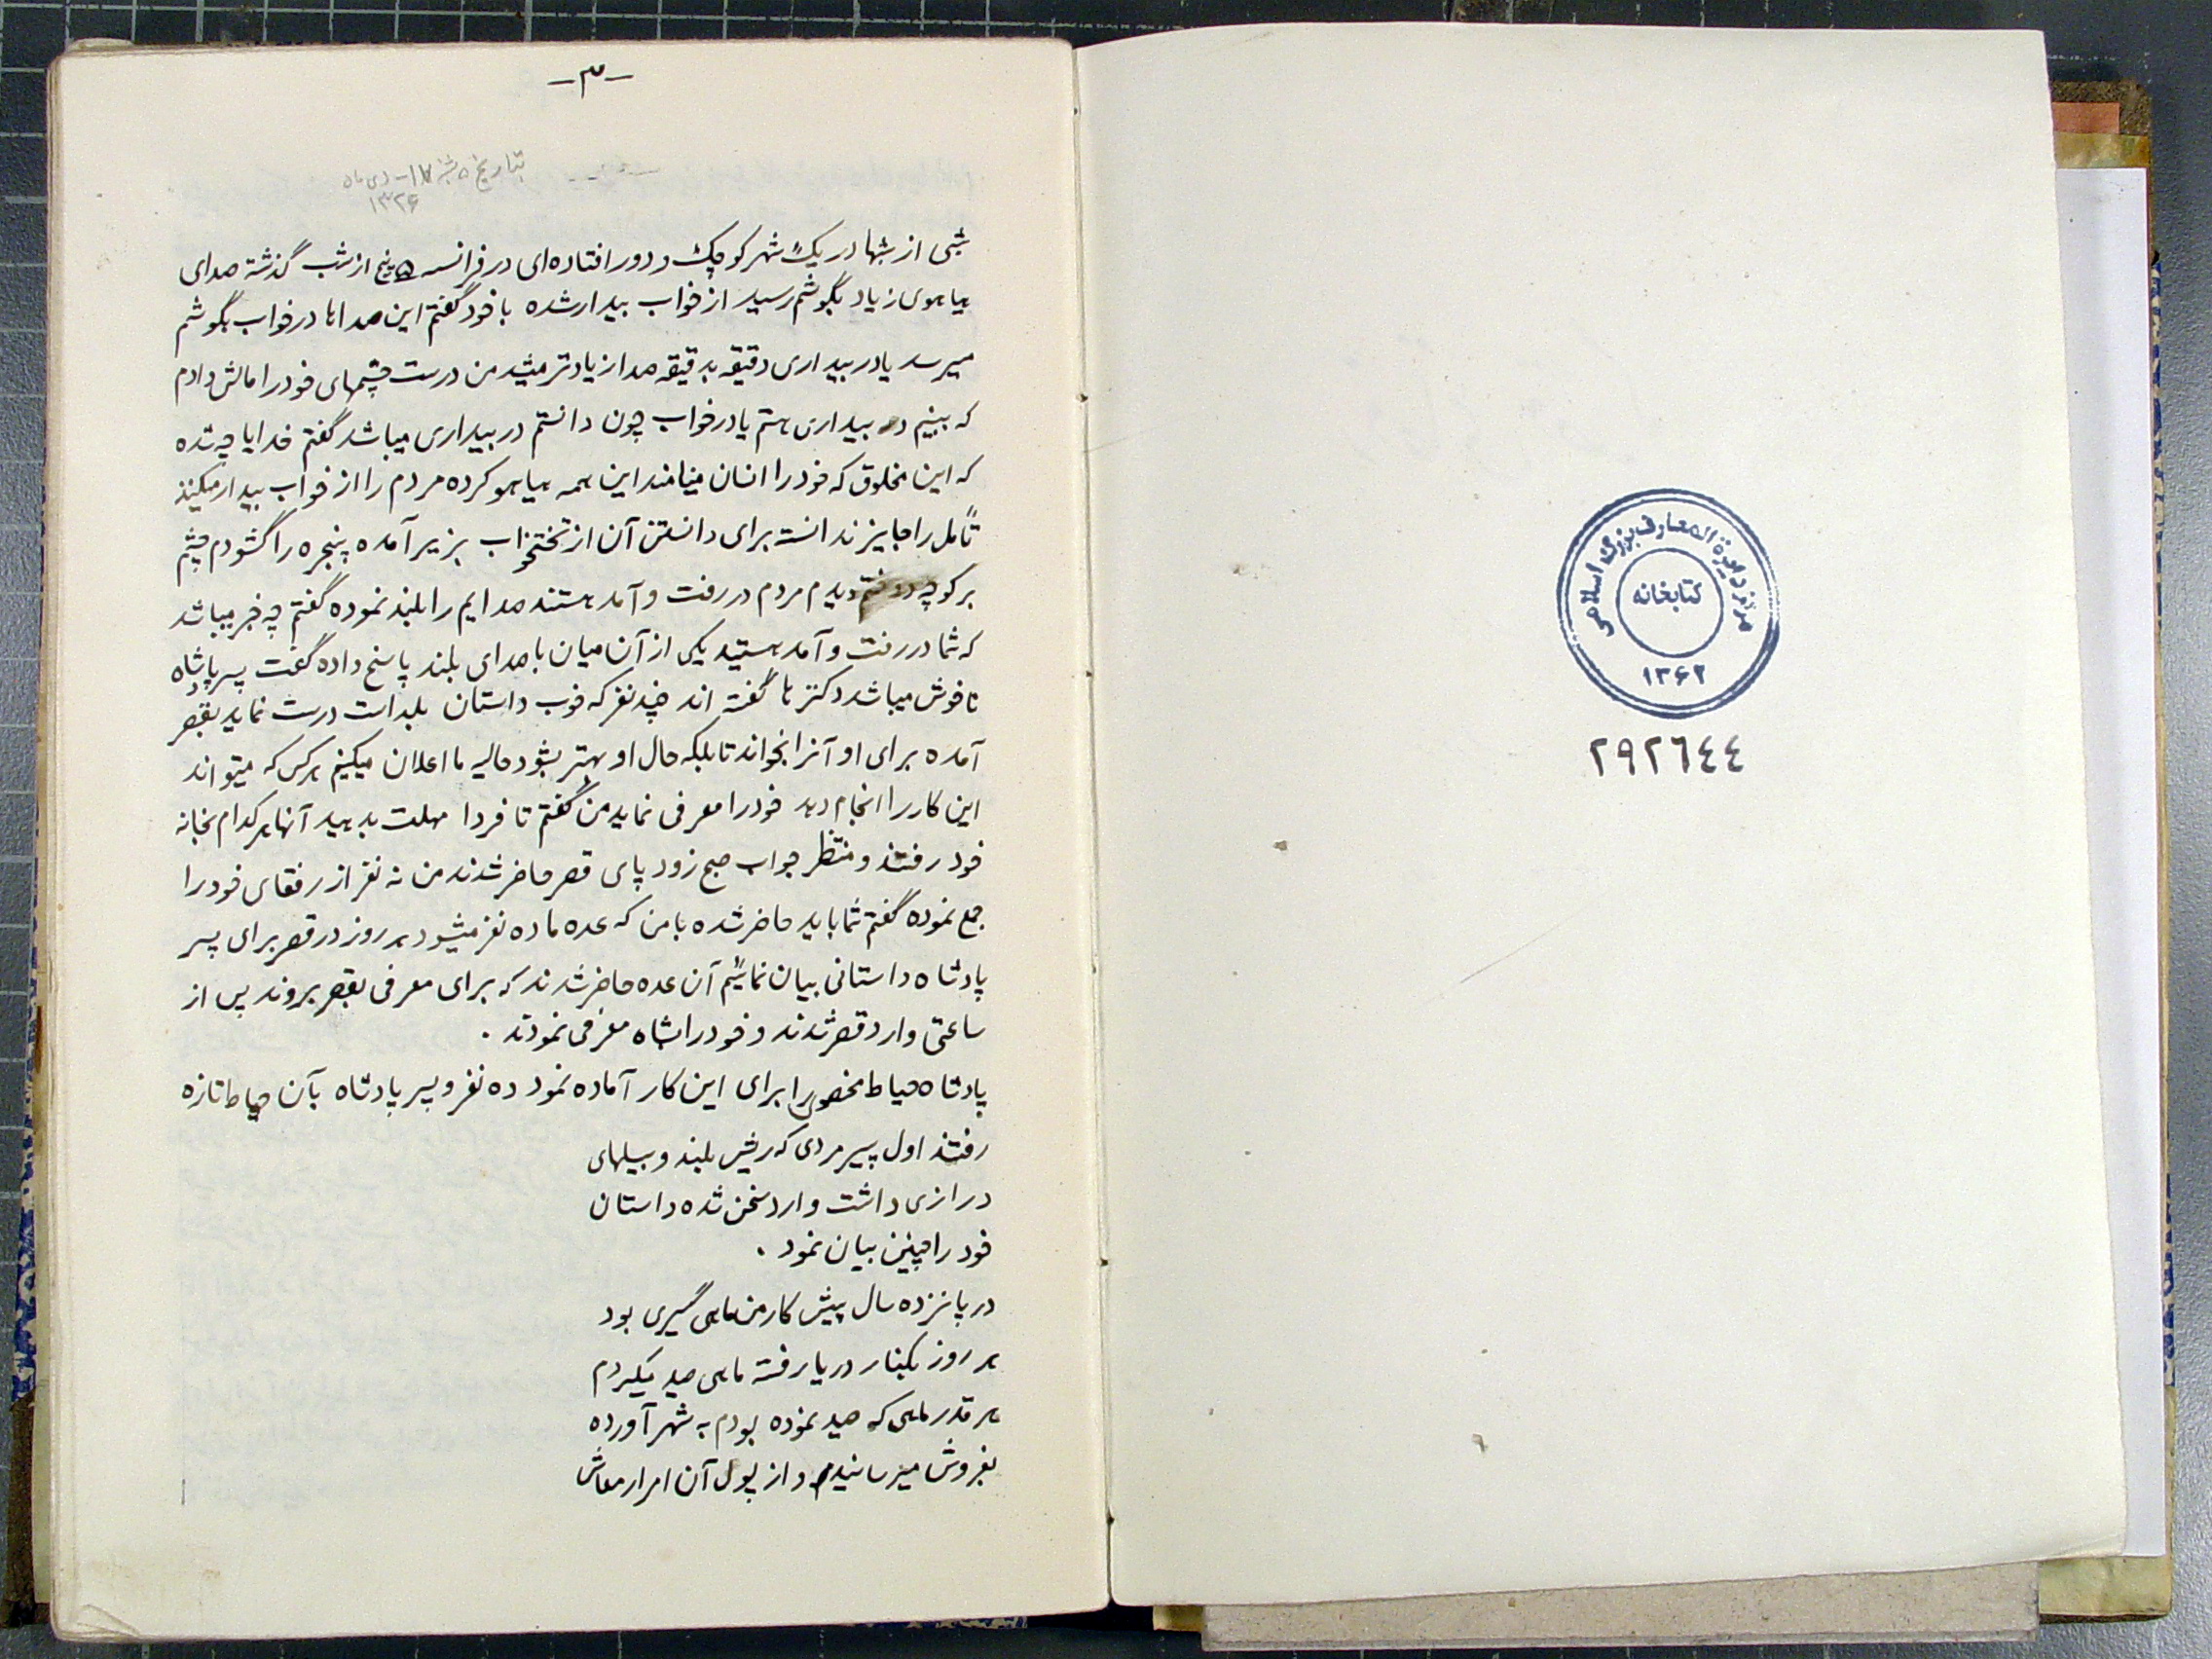 مرکز دایرة المعارف بزرگ اسلامی
کتابخانه
۱۳۶۲
۲۹۲٦٤٤
-۳-
بتاریخ ۵ شنبه ۱۷- دی ماه
۱۳۲۶
شبی از شبها در یک شهر کوچک و دور افتاده‌ای در فرانسه پنج از شب گذشته صدای
هیاهوی زیاد بگوشم رسید از خواب بیدار شده با خود گفتم این صداها در خواب بگوشم
میرسد یا در بیداری دقیقه بدقیقه صدا زیادتر میشد من درست چشمهای خود را مالش دادم
که ببینم در بیداری هستم یا در خواب چون دانستم در بیداری میباشد گفتم خدایا چه شده
که این مخلوق که خود را انسان مینامند این همه هیاهو کرده مردم را از خواب بیدار میکنند
تأمل را جایز ندانست برای دانستن آن از تختخواب بزیر آمده پنجره را گشودم چشم
بر کوچه دوختم دیدم مردم در رفت و آمد هستند صدایم را بلند نموده گفتم چه خبر میباشد
که شما در رفت و آمد هستید یکی از آن میان با صدای بلند پاسخ داده گفت پسر پادشاه
ناخوش میباشد دکترها گفته اند چند نفر که خوب داستان بلد است درست نماید بقصر
آمده برای او آنرا بخواند تا بلکه حال او بهتر بشود حالیه ما اعلان میکنیم هر کس که میتواند
این کار را انجام دهد خود را معرفی نماید من گفتم تا فردا مهلت بدهید آنها هر کدام بخانه
خود رفتند و منتظر جواب صبح زود پای قصر حاضر شدند من نه نفر از رفقای خود را
جمع نموده گفتم شما باید حاضر شده با من که عده ما ده نفر میشود هر روز در قصر برای پسر
پادشاه داستانی بیان نمائیم آن عده حاضر شدند که برای معرفی بقصر بروند پس از
ساعتی وارد قصر شدند و خود را بشاه معرفی نمودند .
پادشاه حیاط مخصوصی را برای این کار آماده نمود ده نفر و پسر پادشاه بآن حیاط تازه
رفتند اول پیر مردی که ریش بلند و سبیلهای
درازی داشت وارد سخن شده داستان
خود را چنین بیان نمود .
در پانزده سال پیش کار من ماهی گیری بود
هر روز بکنار دریا رفته ماهی صید میکردم
هر قدر ماهی که صید نموده بودم به شهر آورده
بفروش میرسانیدم و از پول آن امرار معاش